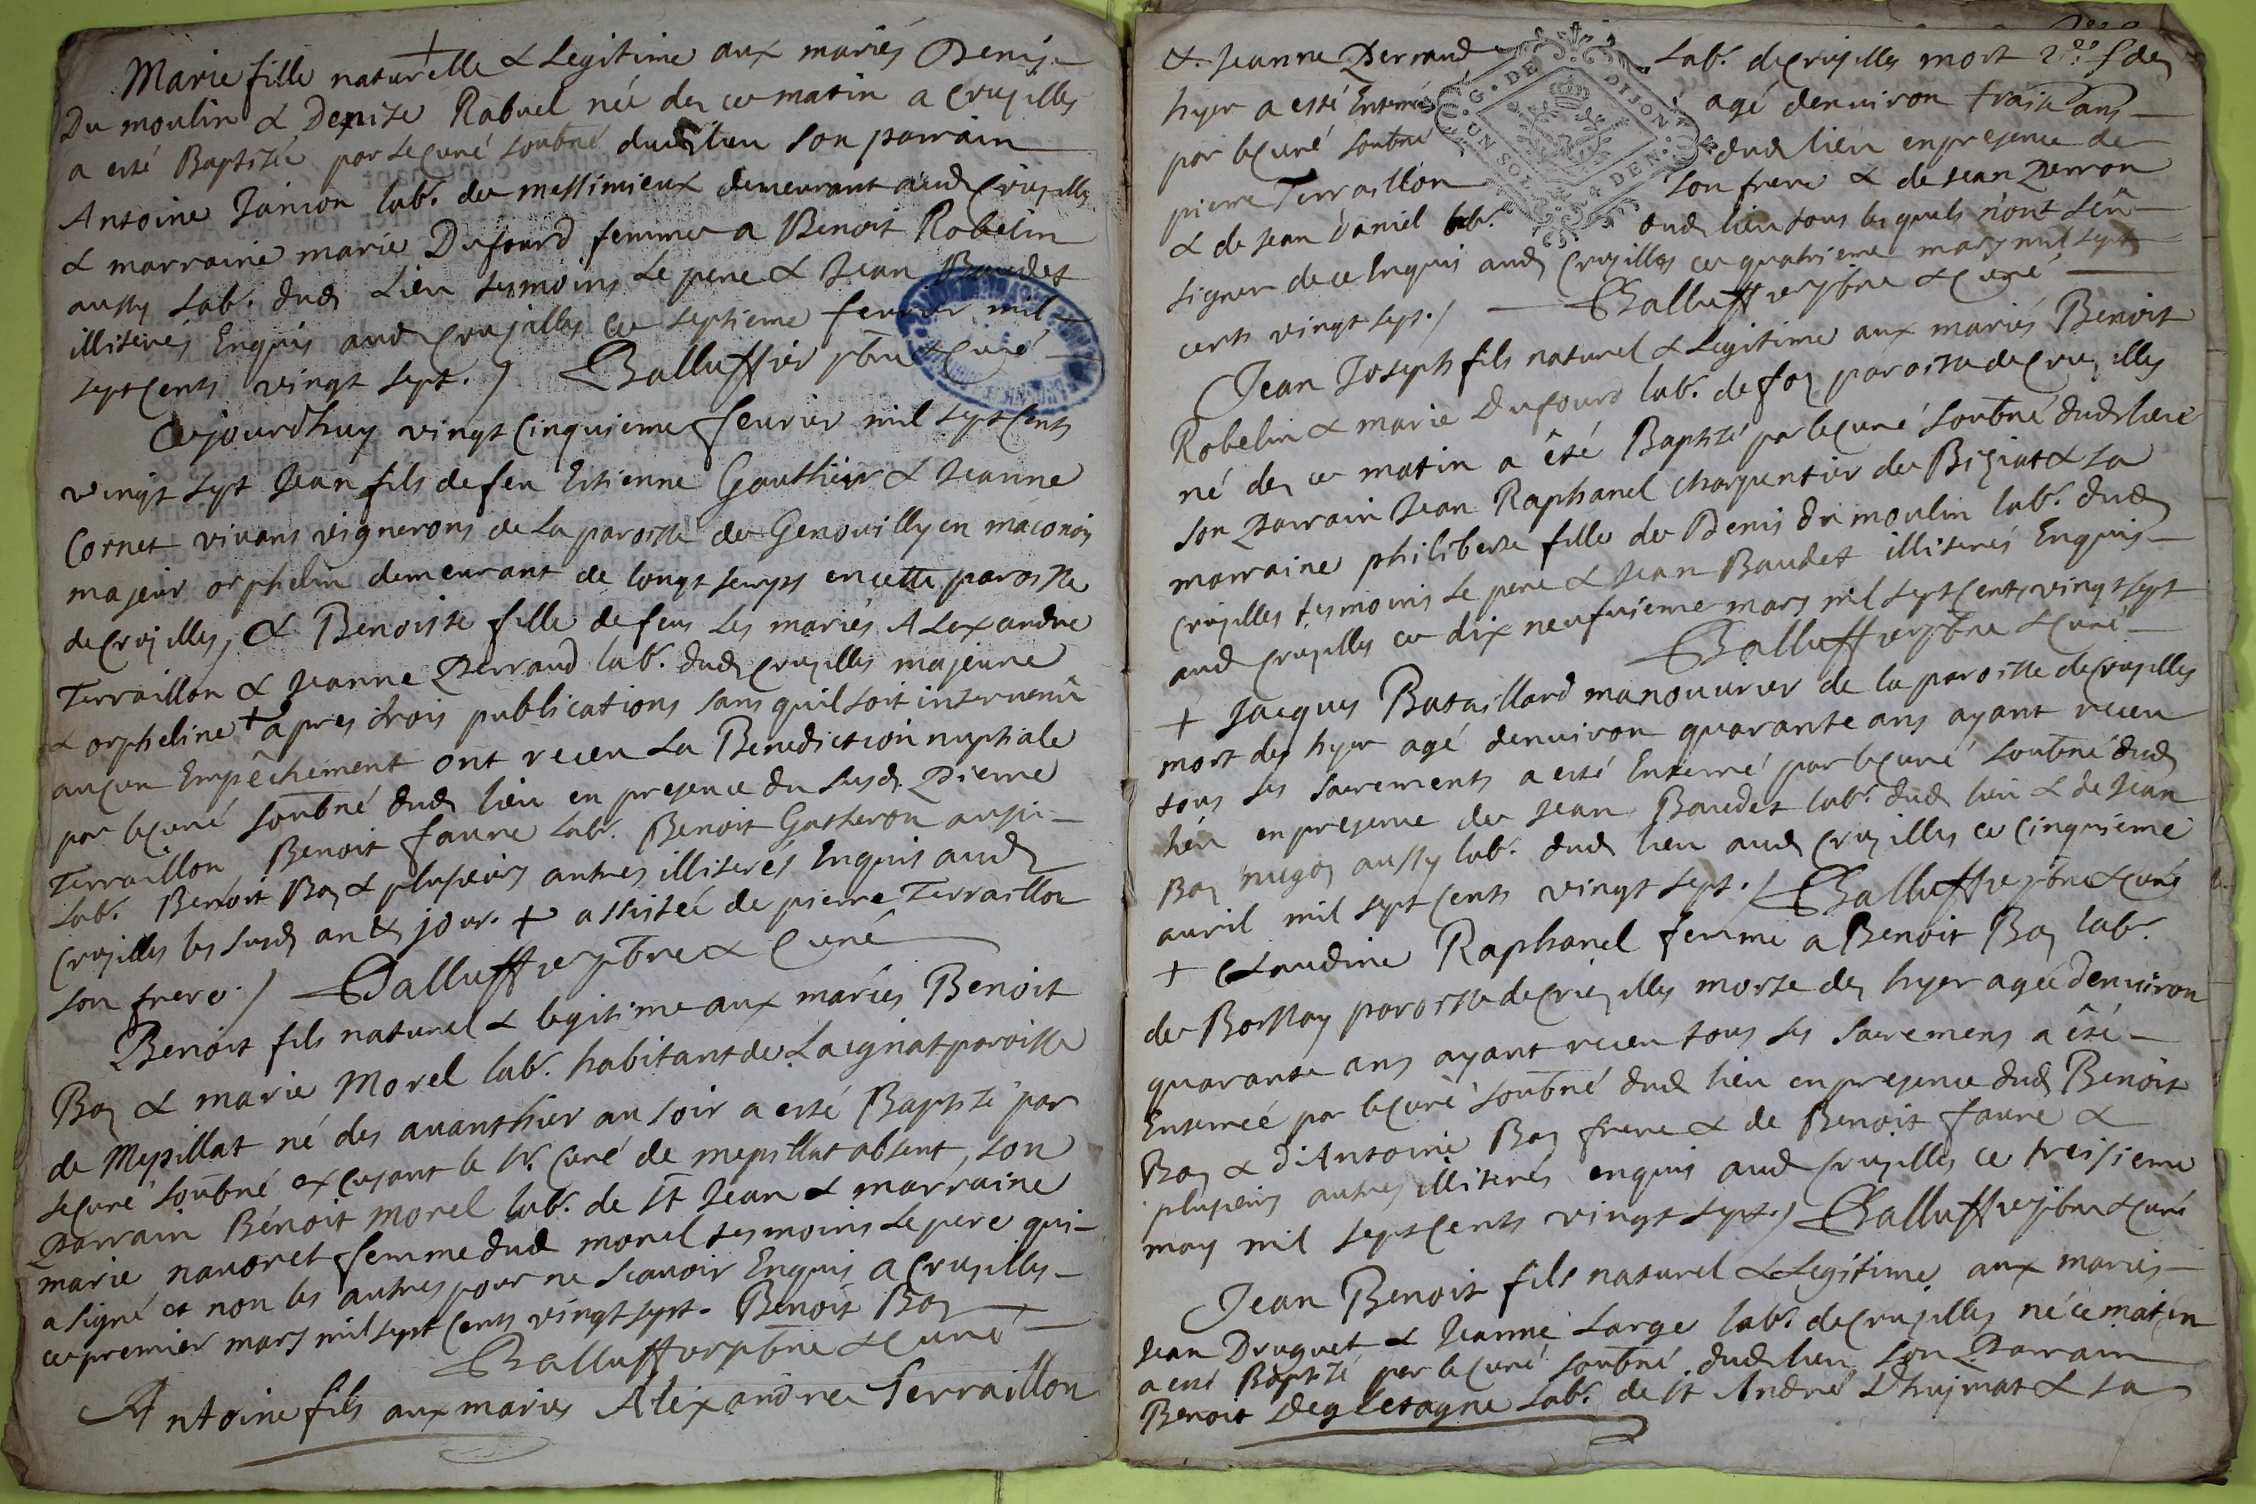 Marie fille naturelle & Legitime aux mariés Denis
Du moulin & Denise Rabuel née des ce matin a Cruzilles
a esté Baptisée par le Curé soubné dud lieu son parrain
Antoine Janion lab.r de messimieux demeurant aud Cruzilles
& marraine marie Dufourd femme a Benoit Robelin
aussy lab.r dud Lieu tesmoins Le pere & Jean Baudet
illiterés Enquis aud Cruzilles ce septieme fevrier mil
sept Cents vingt sept. / Balluffier pbre & Curé
Cejourdhuy vingt Cinquieme fevrier mil sept Cents
vingt sept Jean fils de feu Estienne Gauthier & Jeanne
Cornet vivans vignerons de La paroisse de Genouilly en maconois
majeur orphelin demeurant de longt temps en cette paroisse
de Cruzilles, & Benoiste fille de feus Les mariés Alexandre
Terraillon & Jeanne Perraud lab.r dud Cruzilles majeure
& orpheline + apres trois publications sans quil soit intervenû
aucun Empêchement ont receu La Benediction nuptiale
par le Curé soubné dud lieu en presence du susd Pierre
Terraillon Benoit faure lab.r Benoit Gatheron aussi
Lab.r Benoit Boz & plusieurs autres illiterés Enquis aud
Cruzilles les susd an & jour. + assistée de pierre Terraillon
son frere. / Balluffier pbre & Curé
Benoit fils naturel & legitime aux mariés Benoit
Boz & marie Morel lab.r habitant de Laignat paroisse
de Mepillat né des avanthier au soir a esté Baptisé par
Le Curé soubné excusant le Sr. Curé de mepillat absent, son
Parrain Bénoit morel lab.r de St Jean & marraine
marie navoret femme dud morel tesmoins Le pere qui
a signé et non les autres pour ne scavoir Enquis a Cruzilles
ce premier mars mil sept Cents vingt sept. Benoit Boz
Balluffier pbre & Curé
Antoine fils aux mariés Alexandre Terraillon
&. Jeanne Perraud Lab.r de Cruzilles mort des
hyer a esté Enterré agé denviron traise ans
par le Curé soubné dud lieu en presence de
pierre Terraillon son frere & de Jean Perron
& de Jean daniel lab.r dud lieu tous lesquels n'ont sçû
signer de ce Enquis aud Cruzilles ce quatrieme mars mil sept
cents vingt sept. / Balluffier pbre & Curé
G. DE DIJON
UN SOL 4 DEN.
Jean Joseph fils naturel & Legitime aux mariés Benoit
Robelin & marie Dufourd lab.r de foz paroisse de Cruzilles
né des ce matin a êté Baptisé par le Curé soubné dud lieu
son Parrain Jean Raphanel charpentier de Biziat & sa
marraine philiberte fille de Denis du moulin lab.r dud
Cruzilles tesmoins Le pere & Jean Baudet illiterés Enquis
aud Cruzilles ce dix neufvieme mars mil sept Cents vingt sept
Balluffier pbre & Curé
+ Jacques Bataillard manouvrier de la paroisse de Cruzilles
mort des hyer agé denviron quarante ans ayant receu
tous ses sacrements a esté Enterré par le Curé soubné dud
lieu en presence de Jean Baudet lab.r dud lieu & de Jean
Boz nugoz aussy lab.r dud lieu aud Cruzilles ce Cinquieme
avril mil sept Cents vingt sept. / Balluffier pbre & Curé
+ Claudine Raphanel femme a Benoit Boz lab.r
de Bossay paroisse de Cruzilles morte des hyer agée denviron
quarante ans ayant receu tous ses sacremens a êté
Enterrée par le Curé soubné dud lieu en presence dud Benoit
Boz & d'Antoine Boz frere & de Benoit faure &
plusieurs autres illiterés enquis aud Cruzilles ce treisieme
may mil sept Cents vingt sept. / Balluffier pbre & Curé
Jean Benoit fils naturel & Legitime aux mariés
Jean Druguet & Jeanne Large lab.r de Cruzilles né ce matin
a esté Baptisé par le Curé soubné dud lieu son Parrain
Benoit Degletagne Lab.r de St André Dhuiriat & sa